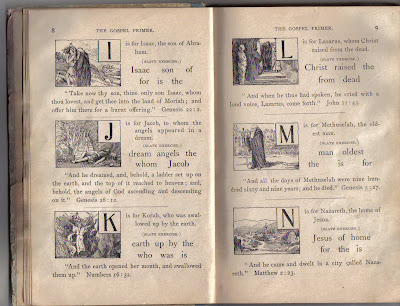 8 THE GOSPEL PRIMER.
I
is for Isaac, the son of Abra-
ham.
(SLATE EXERCISE.)
Isaac son of
for is the
"Take now thy son, thine only son Isaac, whom
thou lovest, and get thee into the land of Moriah; and
offer him there for a burnt offering." Genesis 22:2.
J
is for Jacob, to whom the
angels appeared in a
dream.
(SLATE EXERCISE.)
dream angels the
whom Jacob
"And he dreamed, and, behold, a ladder set up on
the earth, and the top of it reached to heaven; and,
behold, the angels of God ascending and descending
on it." Genesis 28:12.
K
is for Korah, who was swal-
lowed up by the earth.
(SLATE EXERCISE.)
earth up by the
who was is
"And the earth opened her mouth, and swallowed
them up." Numbers 16:32.
THE GOSPEL PRIMER. 9
L
is for Lazarus, whom Christ
raised from the dead.
(SLATE EXERCISE.)
Christ raised the
from dead
"And when he thus had spoken, he cried with a
loud voice, Lazarus, come forth." John 11:43.
M
is for Methuselah, the old-
est man.
(SLATE EXERCISE.)
man oldest
the is for
"And all the days of Methuselah were nine hun-
dred sixty and nine years; and he died." Genesis 5:27.
N
is for Nazareth, the home of
Jesus.
(SLATE EXERCISE.)
Jesus of home
for the is
"And he came and dwelt in a city called Naza-
reth." Matthew 2:23.